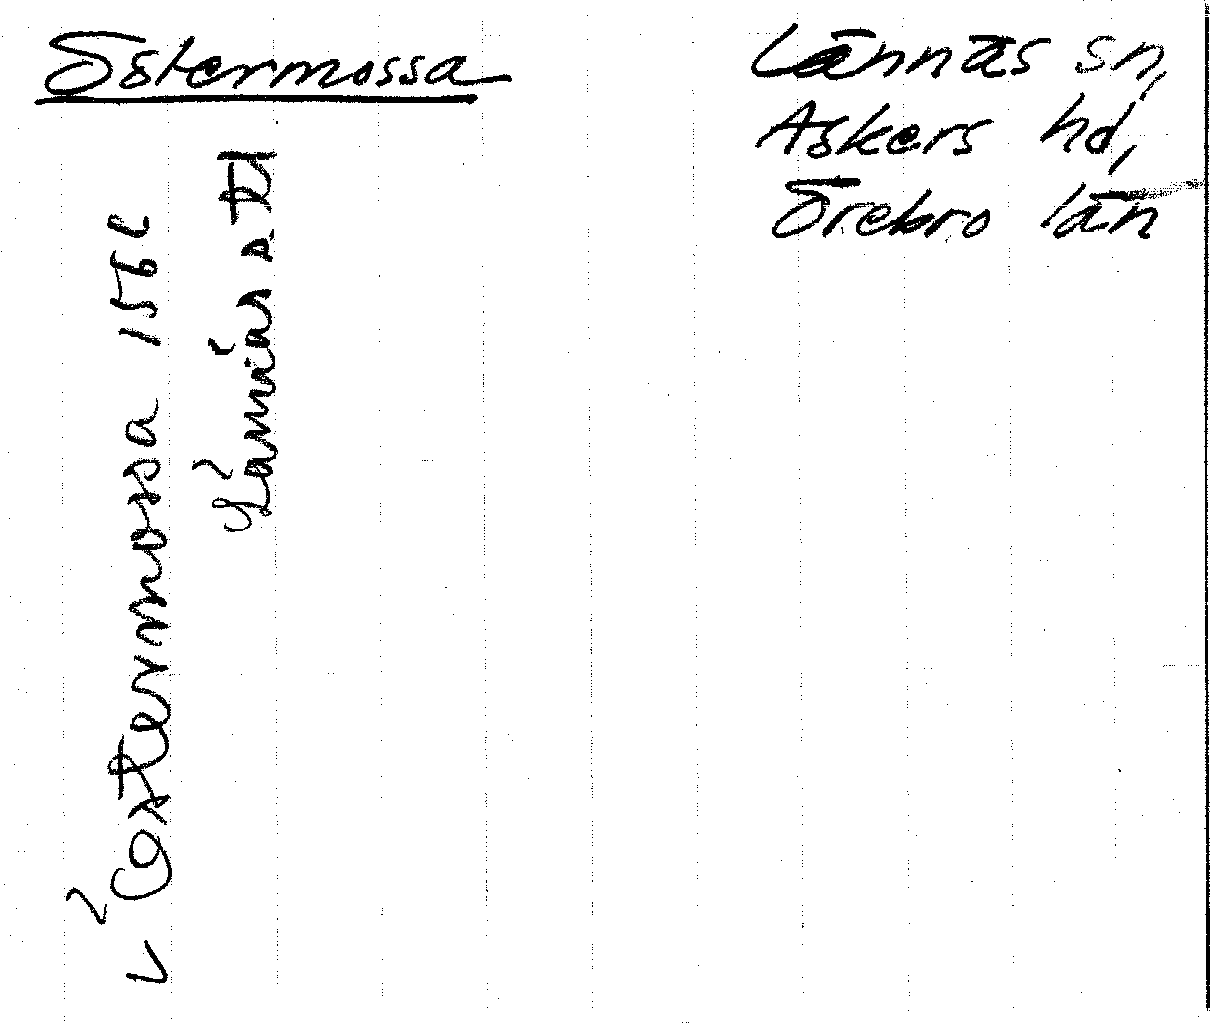 Östermossa
Lännäs sn,
Askers hd,
Örebro län
v Östermossa 1566
Lännäs